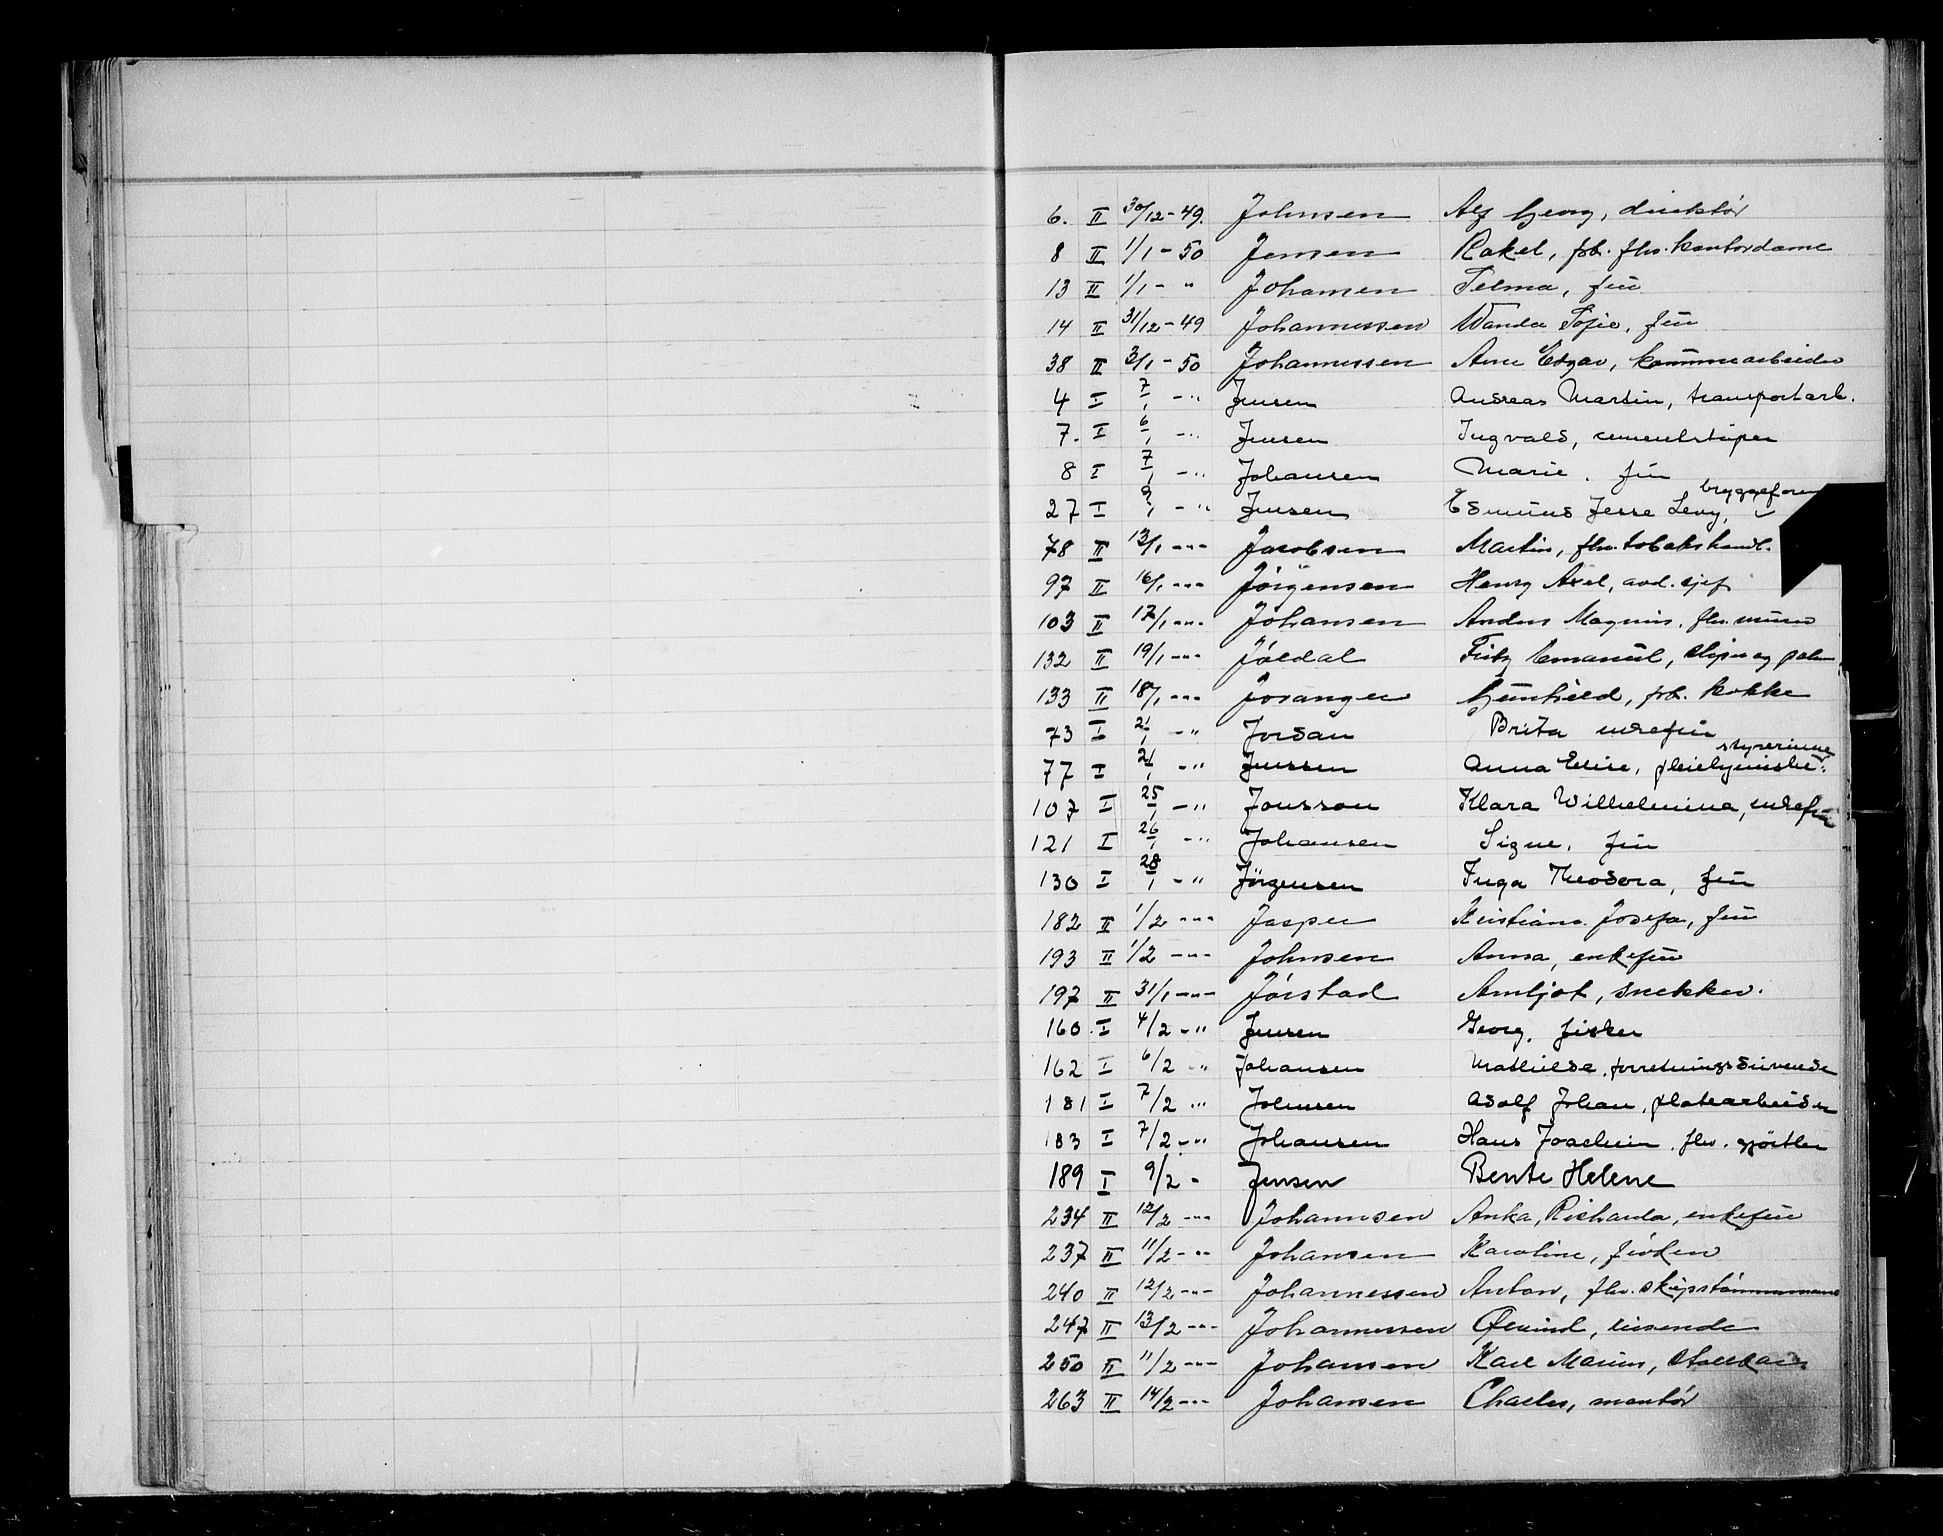 6. II 30/12-49. Johnsen Alf Georg, direktør
8 II 1/1-50 Jensen Rakel, frk. fhv. kontordame
13 II 1/1- " Johansen Telma, frü
14 II 31/12-49 Johannessen Wanda Sofie, frü
38 II 3/1-50 Johannessen Arne Edgar, kommunearbeider
4 I 7/1 -" Jensen Andreas Martin, transportarb.
7. I 6/1 -" Jensen Ingvald, cementstøper
8 I 7/1 -" Johansen Marie, frü
bryggeform
27 I 9/1 -" Jensen Edmund Jesse Levy,
78 II 13/1 -"- Jacobsen Martin, fhv. tobakshandl.
97 II 16/1 -"- Jörgensen Henry Axel, avd. sjef
103 II 17/1 -"- Johansen Anders Magnus, fhv. murer
132 II 19/1 -"- Jöldal Fritz Emanuel, sliper og poler
133 II 18/1 -"- Josanger Gunhild, frk. kokke
73 I 21/1 -" Jordan Brita enkefrü
styrerinne
77 I 21/1 -" Jenssen Anna Elise, pleiehjemsbe.
107 I 25/1 -" Jonsson Klara Wilhelmina, enkefrü
121 I 26/1 -" Johansen Signe, frü
130 I 28/1 -" Jörgensen Inga Theodora, frü
182 II 1/2 -"- Jasper Kristiane Josefa, frü
193 II 1/2 -"- Johnsen Anna, enkefrü
197 II 31/1 -"- Jörstad Arnljot, snekker.
160. I 4/2 -" Jensen Georg, fisker
162 I 6/2 -" Johansen Mathilde, forretningsdrivende
181 I 7/2 -" Johnsen Adolf Johan, platearbeider
183 I 7/2 -" Johansen Hans Joachim, fhv. gjörtler
189 I 9/2 - Jensen Bente Helene
234 II 12/2 -"- Johannsen Anka, Richarda, enkefrü
237 II 11/2 -"- Johansen Karoline, frøken
240 II 12/2 -"- Johannessen Anton, fhv. skipstømmermann
247 II 13/2 -"- Johannessen Øivind, reisende
250 II 11/2 -"- Johansen Karl Marius,
263 II 14/2 -"- Johansen Charles, montør